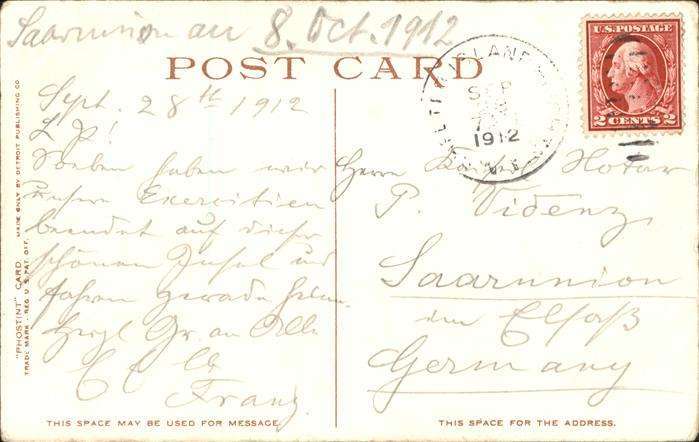 Saarunion an 8. Oct. 1912
POST CARD
U.S. POSTAGE
2 CENTS 2
SEP
1912
N.Y.
Sept. 28th 1912
L. P.!
Soeben haben wir
unsere Exercitien
beendet auf dieser
schönen Insel und
fahren gerade heim.
Herzl. Gr. an Alle
Franz
Herrn Notar
P. Videnz
Saarunion
im Elsaß
Germany
"PHOSTINT" CARD MADE ONLY BY DETROIT PUBLISHING CO.
TRADE MARK REG. U.S. PAT. OFF.
THIS SPACE MAY BE USED FOR MESSAGE.
THIS SPACE FOR THE ADDRESS.